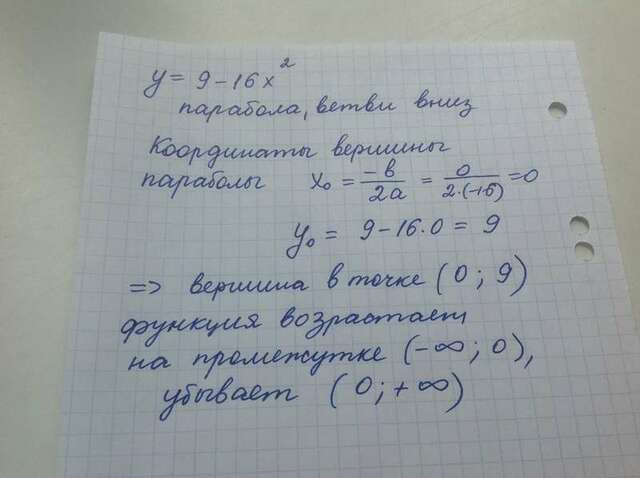 y = 9 - 16x²
парабола, ветви вниз
Координаты вершины
параболы x₀ = -в/2а = 0/2·(-16) = 0
y₀ = 9 - 16·0 = 9
=> вершина в точке (0; 9)
функция возрастает
на промежутке (-∞; 0),
убывает (0; +∞)